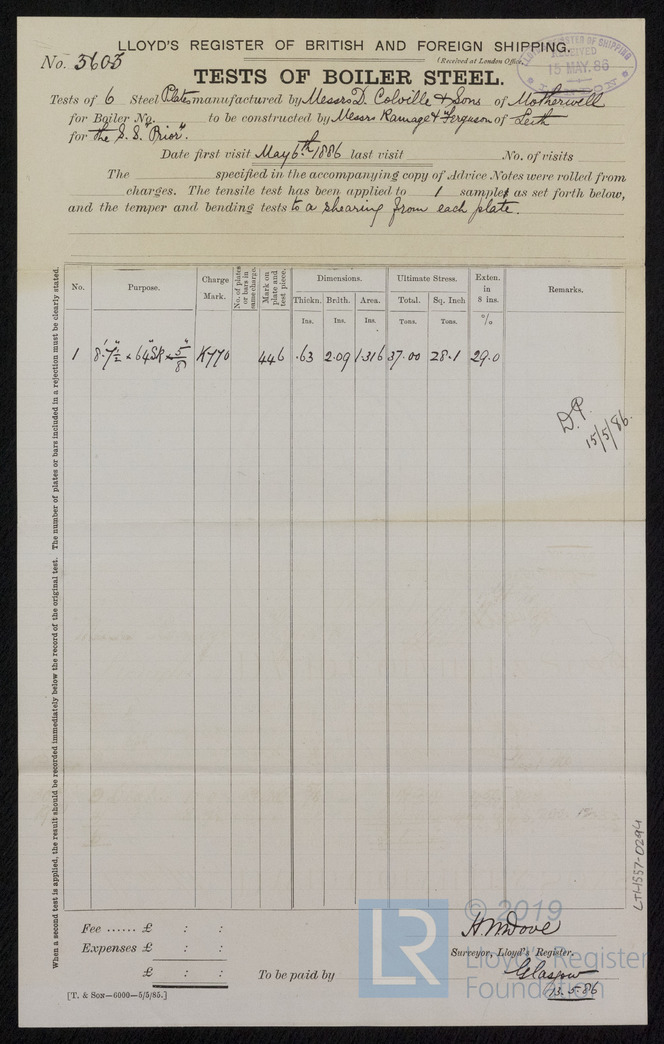 LLOYD'S REGISTER OF BRITISH AND FOREIGN SHIPPING.
No. 3603
(Received at London Office,
LLOYD'S REGISTER OF SHIPPING
RECEIVED
15 MAY. 86
LONDON
TESTS OF BOILER STEEL.
Tests of 6 Steel Plates manufactured by Messrs D. Colville & Sons of Motherwell
for Boiler No. to be constructed by Messrs Ramage & Ferguson of Leith
for the S.S. "Prior".
Date first visit May 6th 1886 last visit No. of visits
The specified in the accompanying copy of Advice Notes were rolled from
charges. The tensile test has been applied to 1 sample as set forth below,
and the temper and bending tests to a shearing from each plate.
When a second test is applied, the result should be recorded immediately below the record of the original test. The number of plates or bars included in a rejection must be clearly stated.
No. Purpose. Charge Mark. No. of plates or bars in same charge. Mark on plate and test piece. Dimensions. Ultimate Stress. Exten. in 8 ins. Remarks.
Thickn. Brdth. Area. Total. Sq. Inch
Ins. Ins. Ins. Tons. Tons. %
1 8'.7½" × 64" SR × 5/8" K770 446 .63 2.09 1.316 37.00 28.1 29.0
D.P.
15/5/86.
LTH557-0294
Fee ...... £ : :
Expenses £ : :
£ : :
To be paid by
H M Dove
Surveyor, Lloyd's Register.
Glasgow
13.5.86
[T. & SON—6000—5/5/85.]
LR
© 2019
Lloyd's Register
Foundation